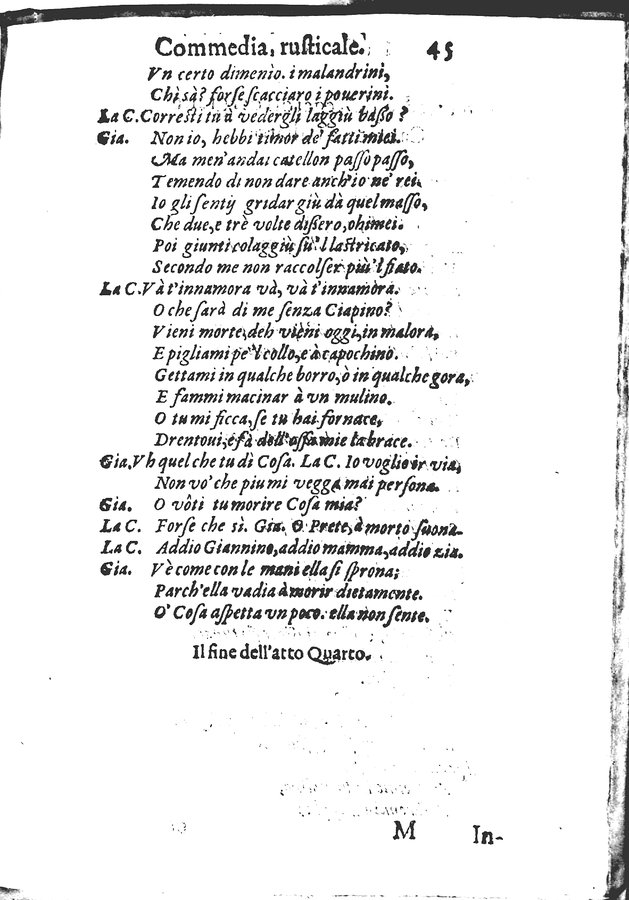 Commedia, ruſticale. 45
Vn certo dimenio. i malandrini,
Chi sà? forſe scacciaro i pouerini.
La C. Correſti tu à vedergli laggiù baßo?
Gia. Non io, hebbi timor de' fatti miei.
Ma men'andai catellon paſſo paſſo,
Temendo di non dare anch'io ne' rei.
Io gli ſentij gridar giù dà quel maſſo,
Che due, e trè volte dißero, ohimei.
Poi giunti colaggiù ſu'l laſtricato,
Secondo me non raccolſer più 'l fiato.
La C. Và t'innamora và, và t'innamora.
O che ſarà di me ſenza Ciapino?
Vieni morte, deh vieni oggi, in malora,
E pigliami pe'l collo, e à capochino.
Gettami in qualche borro, ò in qualche gora,
E fammi macinar à vn mulino.
O tu mi ficca, ſe tu hai fornace,
Drentoui, e fà dell'oſſa mie la brace.
Gia. Vh quel che tu dì Coſa. La C. Io voglio ir via,
Non vo' che piu mi vegga mai perſona.
Gia. O vòti tu morire Coſa mia?
La C. Forſe che sì. Gia. O Prete, à morto ſuona.
La C. Addio Giannino, addio mamma, addio zia.
Gia. Vè come con le mani ella ſi ſprona;
Parch'ella vadia à morir dietamente.
O' Coſa aſpetta vn poco. ella non ſente.
Il fine dell'atto Quarto.
M In-